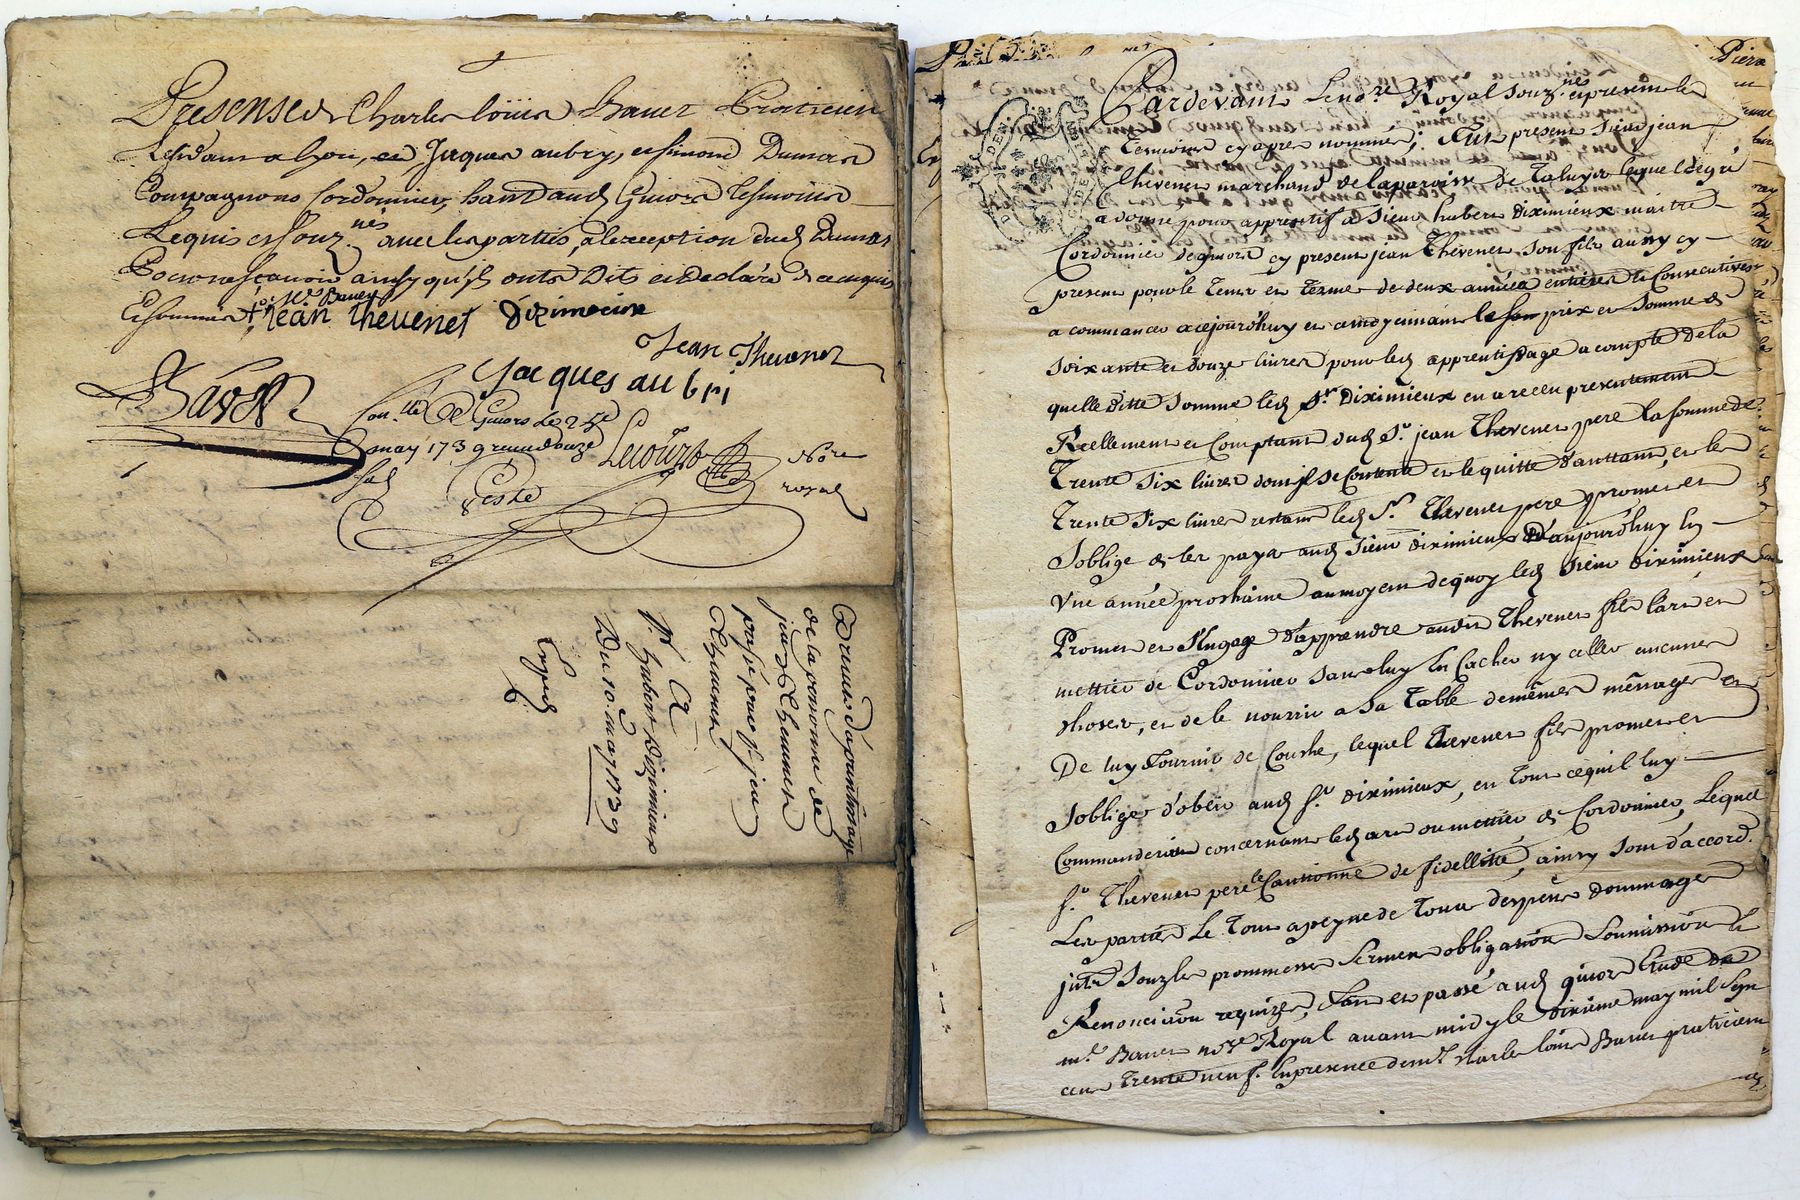 Presense de Charles Loüis Bauet Praticien
Residant a Lyon, et Jacques aubry, et simond Dumas
Compagnons Cordonnier, habitt audt Givors Tesmoins
Lequis et souz.nés avec les parties, a l'exception dudt Dumas
Pour ne scavoir ainsy qu'ils ont Dits et Declaré de ce enquis
Et sommés
Mr. Bauet
jean thevenet Dizimieux
Jean Thevenet
Jacques aubri
Bavet
Conttle a Givors Le 25e
may 1739 receu douze
sols
Lecourt
Nore
royal
Breuue d'aprantissage
de la personne de
jean Thevenet
passé par sr jean
Thevenet
A
Sr hubert Dizimieux
Du 10. may 1739
Expéd
Pardevant Le no.re Royal souz.nés et presents les
Tesmoins cy apres nommés; Fut present sieur jean
Thevenet marchand de la paroisse de Taluyer lequel de gré
a donné pour apprentif a sieur hubert diximieux maitre
Cordonnier de givors cy present jean Thevenet son fils aussy cy
present pour le tems et terme de deux années entieres et Consecutives
a commancer a cejourd'huy et a moyennant le prix et somme de
soixante et douze livres pour ledt apprentissage a compte de la
quelle ditte somme ledt sr diximieux en a receu presentement
Reellement et Comptant dudt sr. jean Thevenet pere la somme de
Trente six livres dont il se Contente et le quitte d'auttant, et les
Trente six livres restant ledt sr. Thevenet pere promet et
s'oblige de les payer audt sieur diximieux D'aujourd'huy En
Une année prochaine au moyen de quoy ledt sieur diximieux
Promet et s'Engage d'apprendre audit Thevenet fils l'art et
mettier de Cordonnier sans luy En Cacher ny celler aucunes
choses, et de le nourrir a sa Table de mêmes ménages et
De luy Fournir de Couche, lequel Thevenet fils promet et
s'oblige d'obeir audt sr. diximieux, en Tout ce qu'il luy
Commandera concernant ledt art ou mettier de Cordonnier, Lequel
sr. Thevenet pere le Cautionne de fidellitté, ainsy sont d'accord.
Les parties Le Tout a peyne de Tous despens dommages
jnts souz les prommesses serment obligation soumission et
Renonciaon requizes, Fait et passé audt givors Etude de
me. Bauet nore. Royal avant midy le dixième may mil sept
cent Trente neuf. En presence de mr. Charles louis Bauet praticien